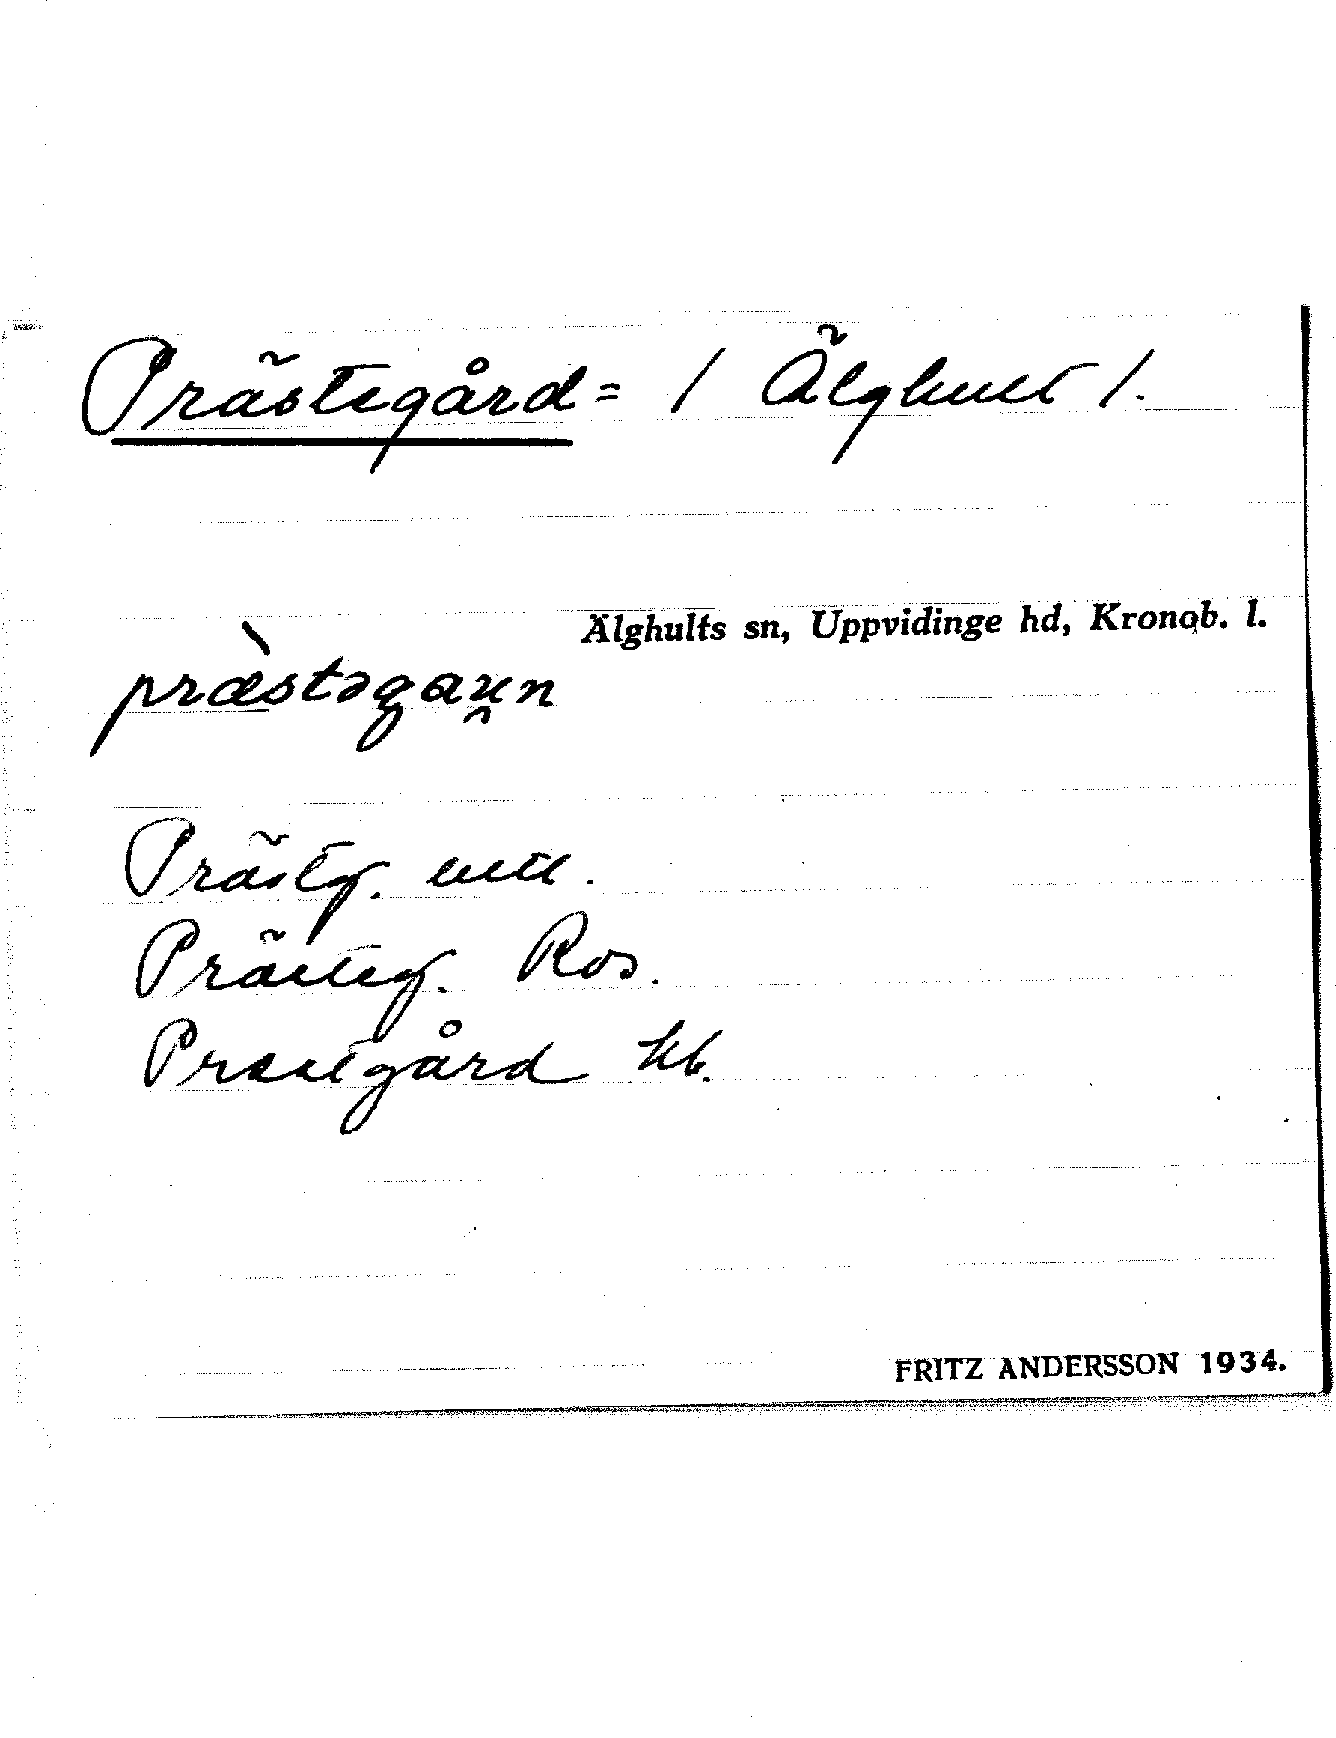 Prästegård = / Älghult /.
Älghults sn, Uppvidinge hd, Kronob. l.
præ̀stəgau̯n
Prästg.
Prästeg. Ros.
Prestgård kb.
FRITZ ANDERSSON 1934.